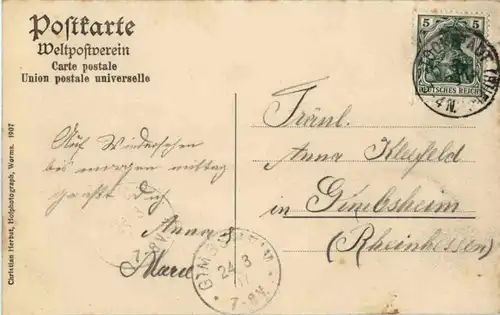 Postkarte
Weltpostverein
Carte postale
Union postale universelle
5 5
DEUTSCHES REICH
4 N.
Fräul.
Anna Kleefeld
in
Gimbsheim
(Rheinhessen)
Auf Wiedersehen
bis morgen mittag
grüßt Dich
Anna
7-8V
GIMBSHEIM
24 3
07
7-8V.
Christian Herbst, Hofphotograph, Worms. 1907